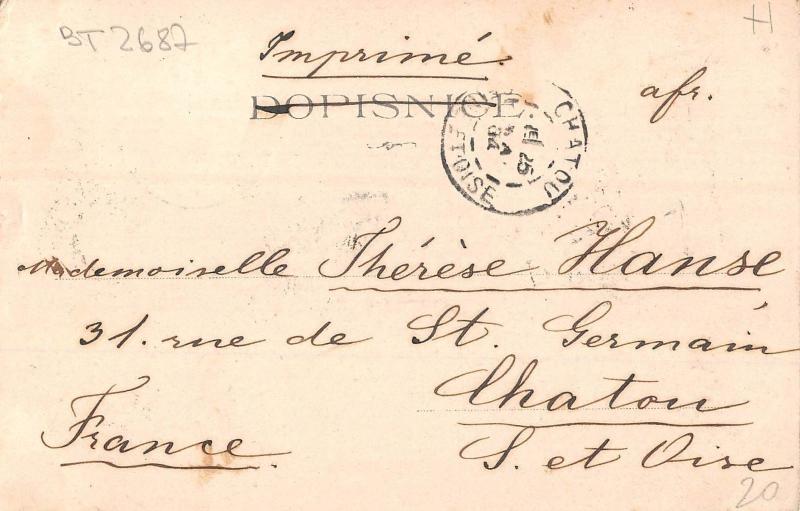 BT 2687
H
Imprimé.
DOPISNICE
afr.
CHATOU
ET OISE
Mademoiselle Thérèse Hanse
31. rue de St. Germain
Chatou
France.
S. et Oise
20